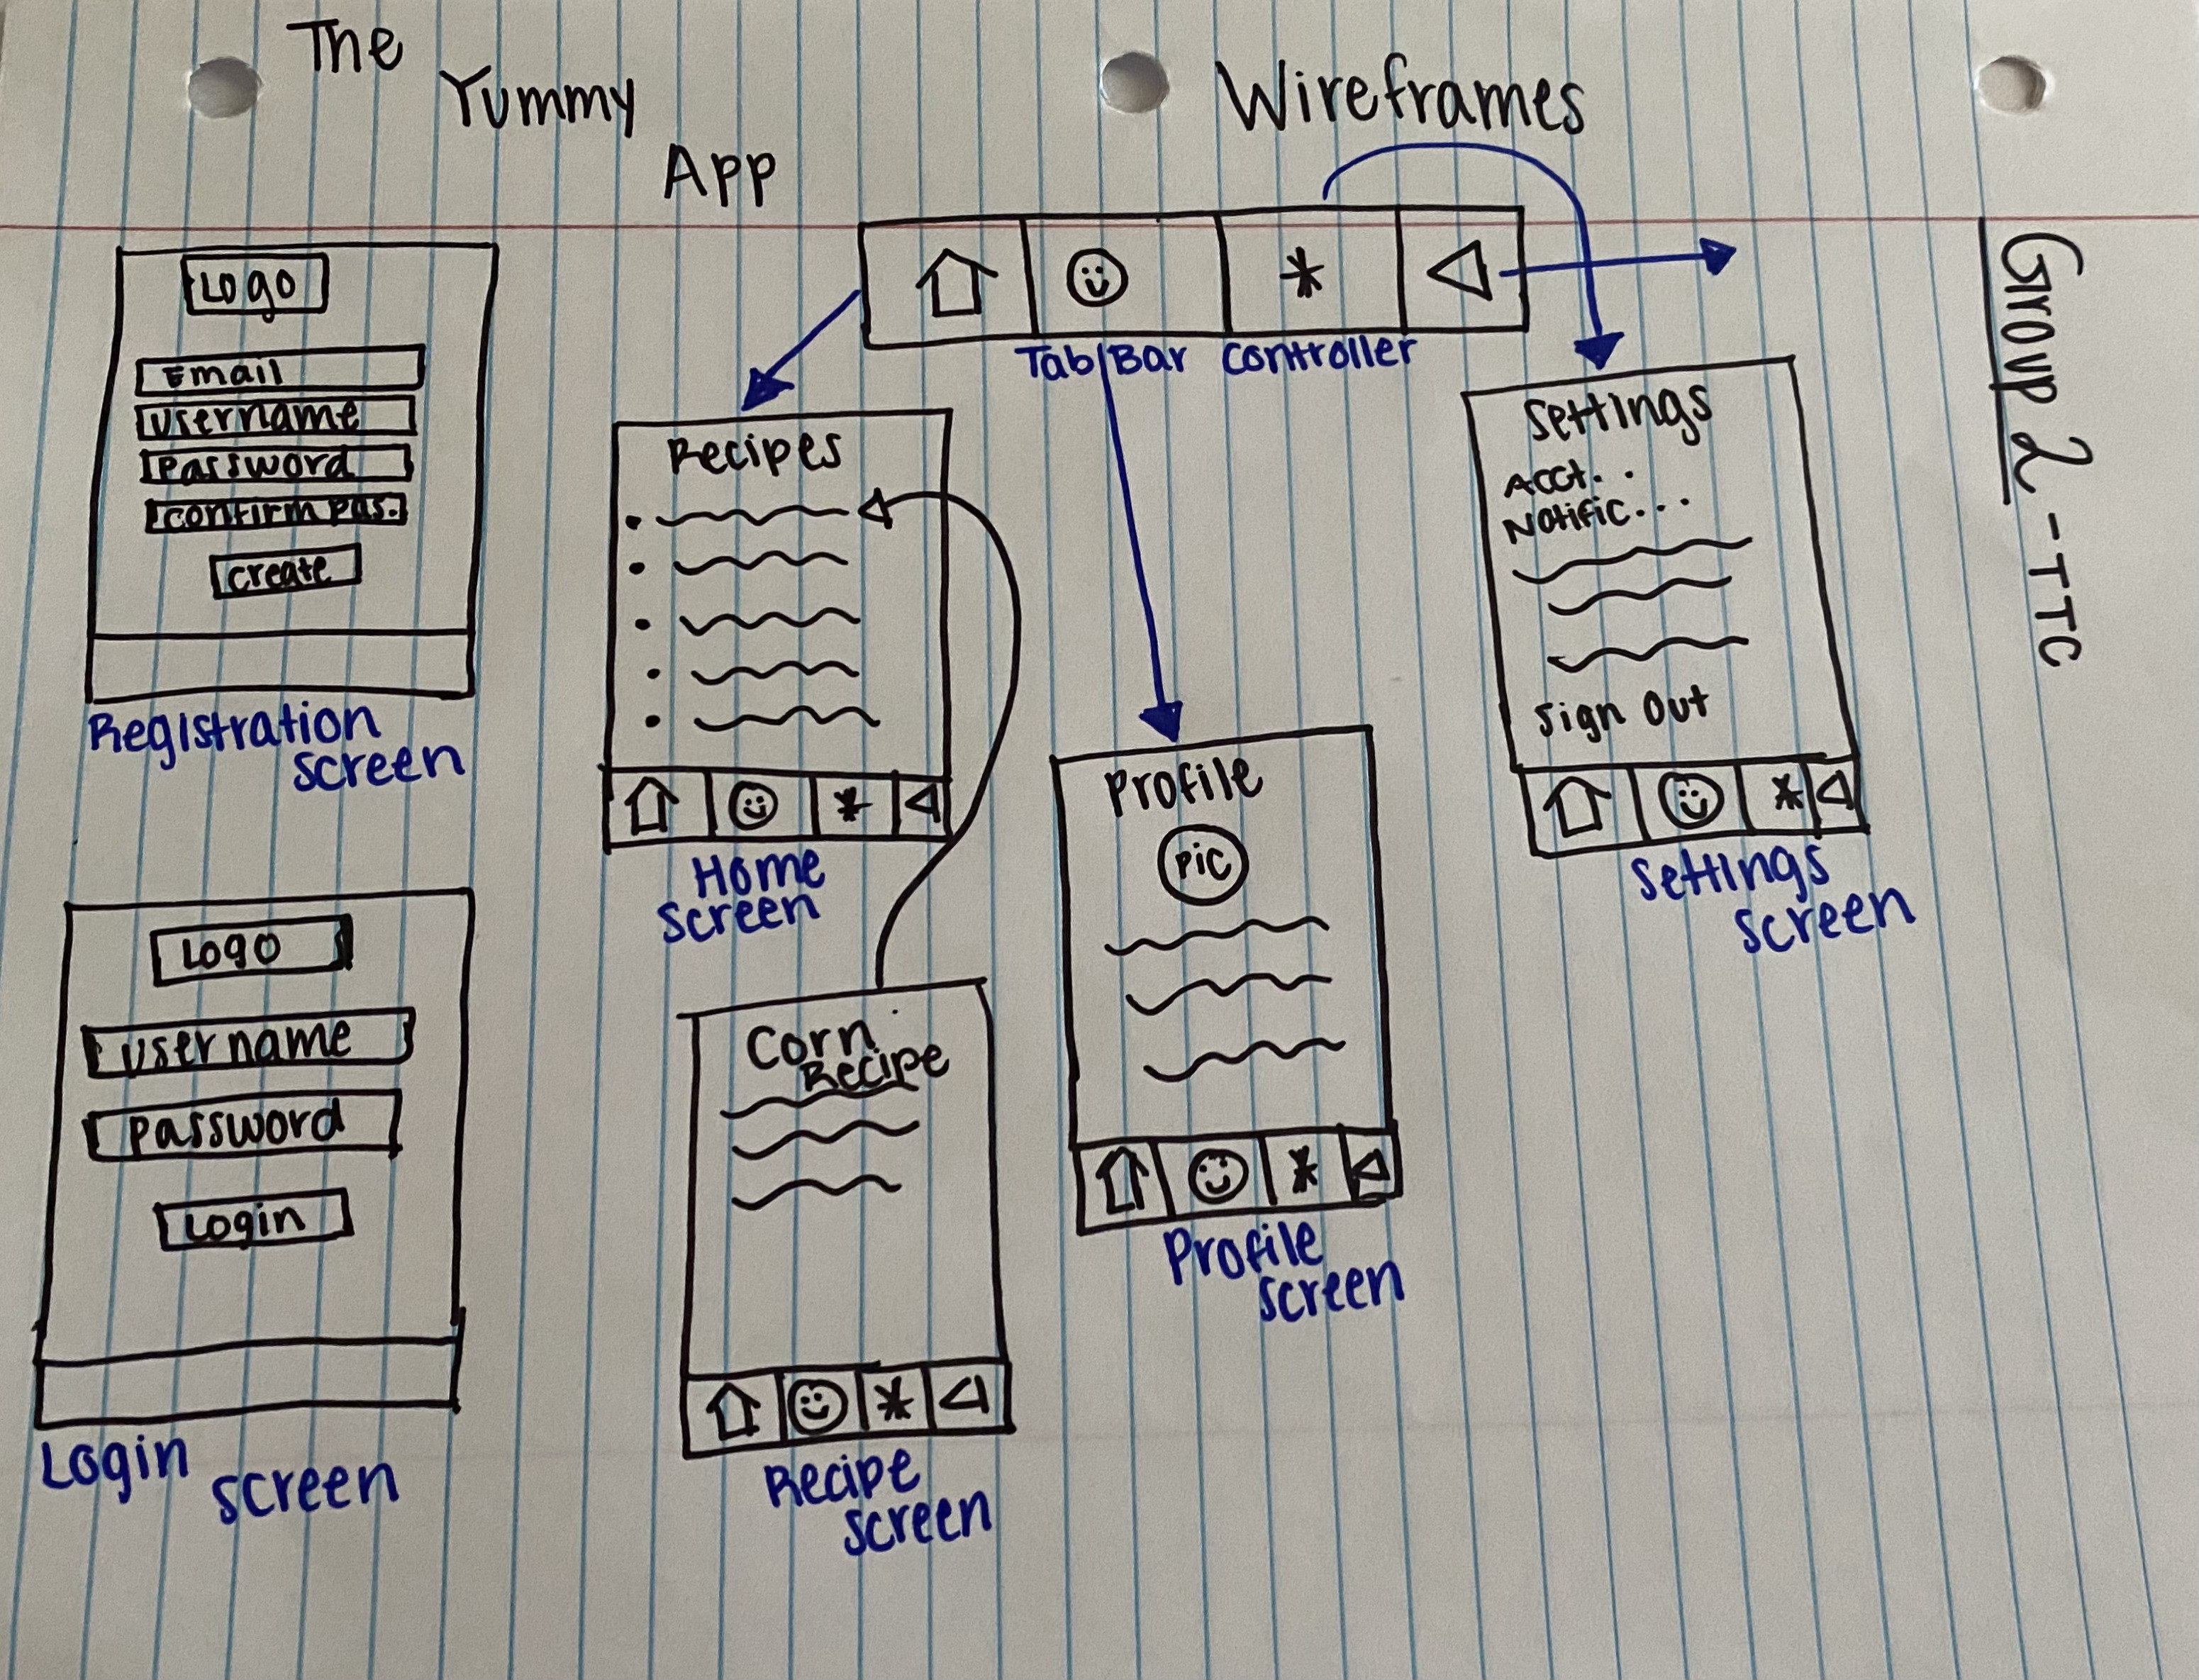 The
Yummy
App
Wireframes
Group 2 - TTC
Logo
Email
username
password
confirm pas.
create
Registration
screen
Logo
username
password
Login
Login
screen
Tab Bar controller
Recipes
Home
screen
Corn
Recipe
Recipe
screen
Profile
Pic
Profile
screen
Settings
Acct. .
Notific...
Sign Out
Settings
screen